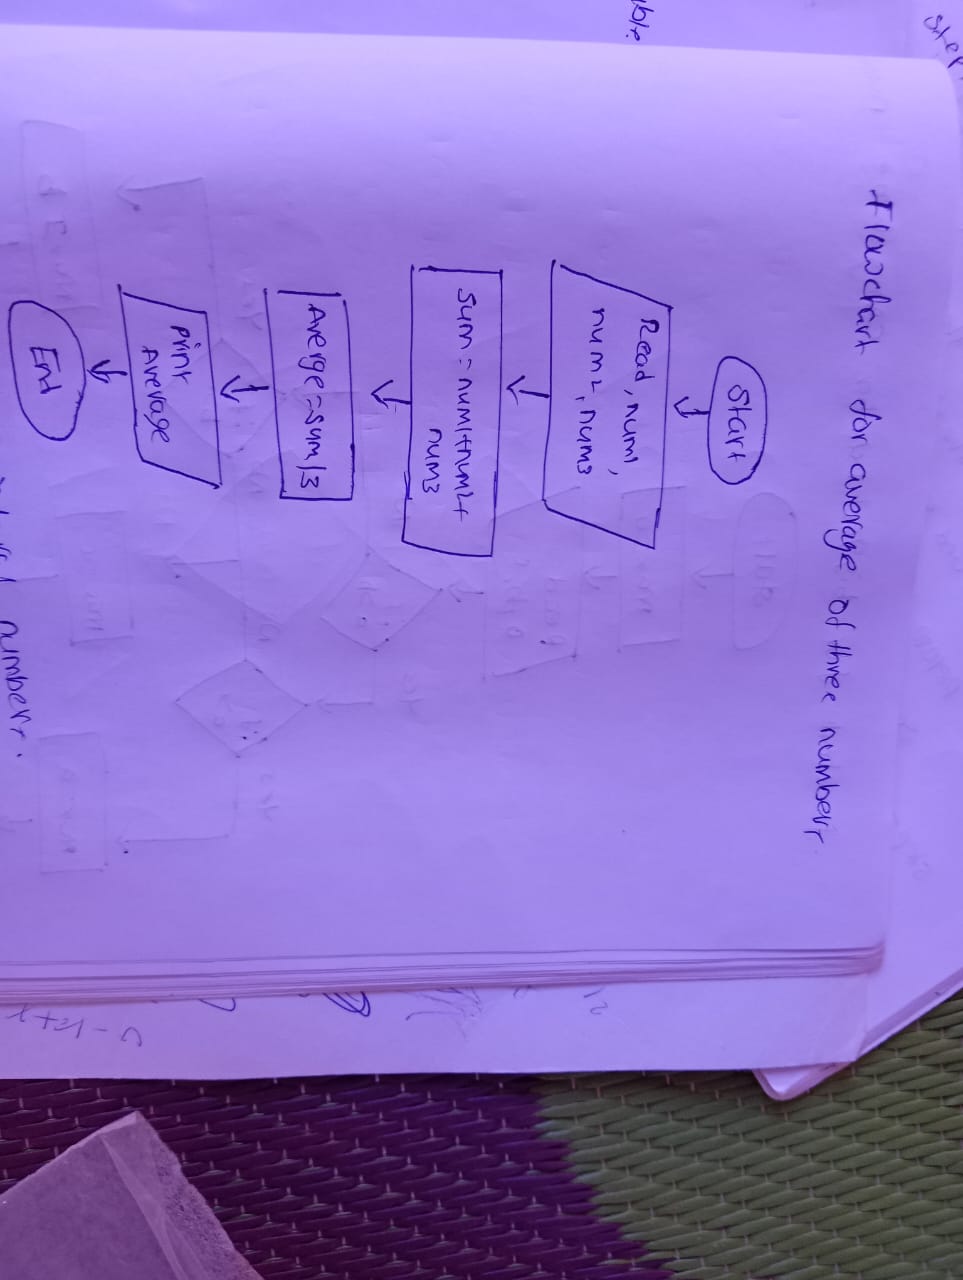 Flowchart for average of three numbers
Start
Read, num1,
num2, num3
Sum = num1+num2+
num3
Averge = sum/3
print
Average
End
numbers.